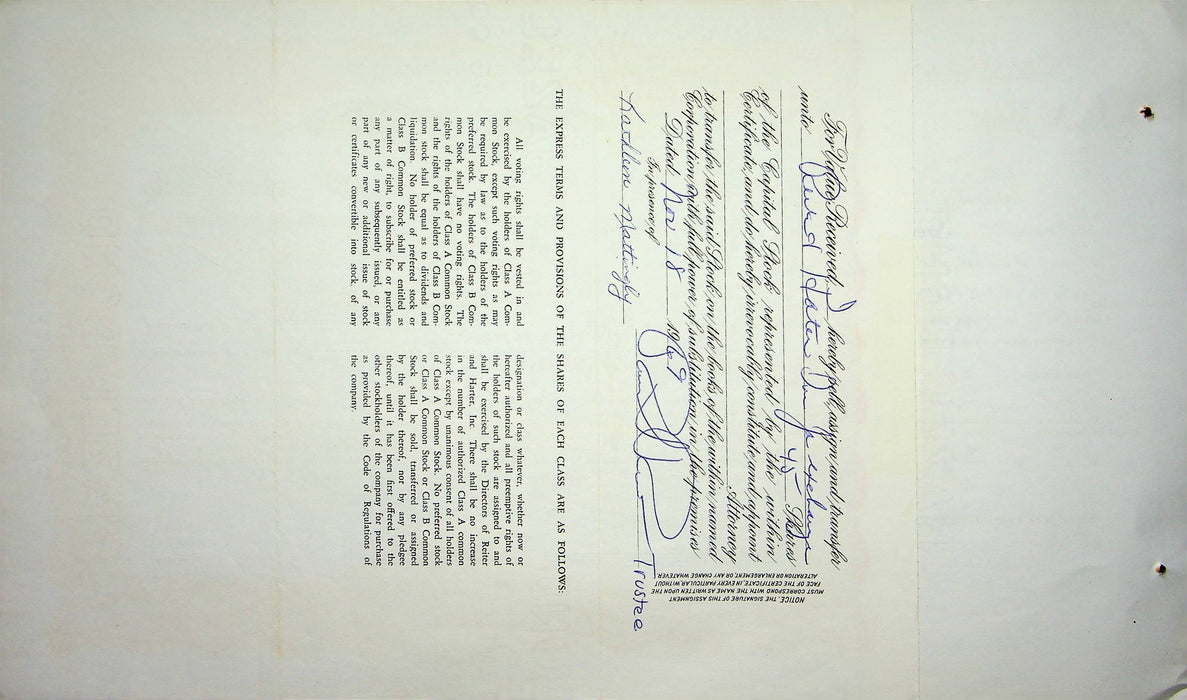 For Value Received, I hereby sell, assign and transfer
unto
45 Shares
of the Capital Stock represented by the within
Certificate, and do hereby irrevocably constitute and appoint
Attorney
to transfer the said Stock on the books of the within named
Corporation with full power of substitution in the premises
Dated Nov 18 1969
In presence of
Kathleen Mattingly
Trustee
NOTICE. THE SIGNATURE OF THIS ASSIGNMENT
MUST CORRESPOND WITH THE NAME AS WRITTEN UPON THE
FACE OF THE CERTIFICATE, IN EVERY PARTICULAR, WITHOUT
ALTERATION OR ENLARGEMENT, OR ANY CHANGE WHATEVER.
THE EXPRESS TERMS AND PROVISIONS OF THE SHARES OF EACH CLASS ARE AS FOLLOWS:
All voting rights shall be vested in and
be exercised by the holders of Class A Com-
mon Stock, except such voting rights as may
be required by law as to the holders of the
preferred stock. The holders of Class B Com-
mon Stock shall have no voting rights. The
rights of the holders of Class A Common Stock
and the rights of the holders of Class B Com-
mon stock shall be equal as to dividends and
liquidation. No holder of preferred stock or
Class B Common Stock shall be entitled as
a matter of right, to subscribe for or purchase
any part of any subsequently issued, or any
part of any new or additional issue of stock
or certificates convertible into stock, of any
designation or class whatever, whether now or
hereafter authorized and all preemptive rights of
the holders of such stock are assigned to and
shall be exercised by the Directors of Reiter
and Harter, Inc. There shall be no increase
in the number of authorized Class A common
stock except by unanimous consent of all holders
of Class A Common Stock. No preferred stock
or Class A Common Stock or Class B Common
Stock shall be sold, transferred or assigned
by the holder thereof, nor by any pledgee
thereof, until it has been first offered to the
other stockholders of the company for purchase
as provided by the Code of Regulations of
the company.